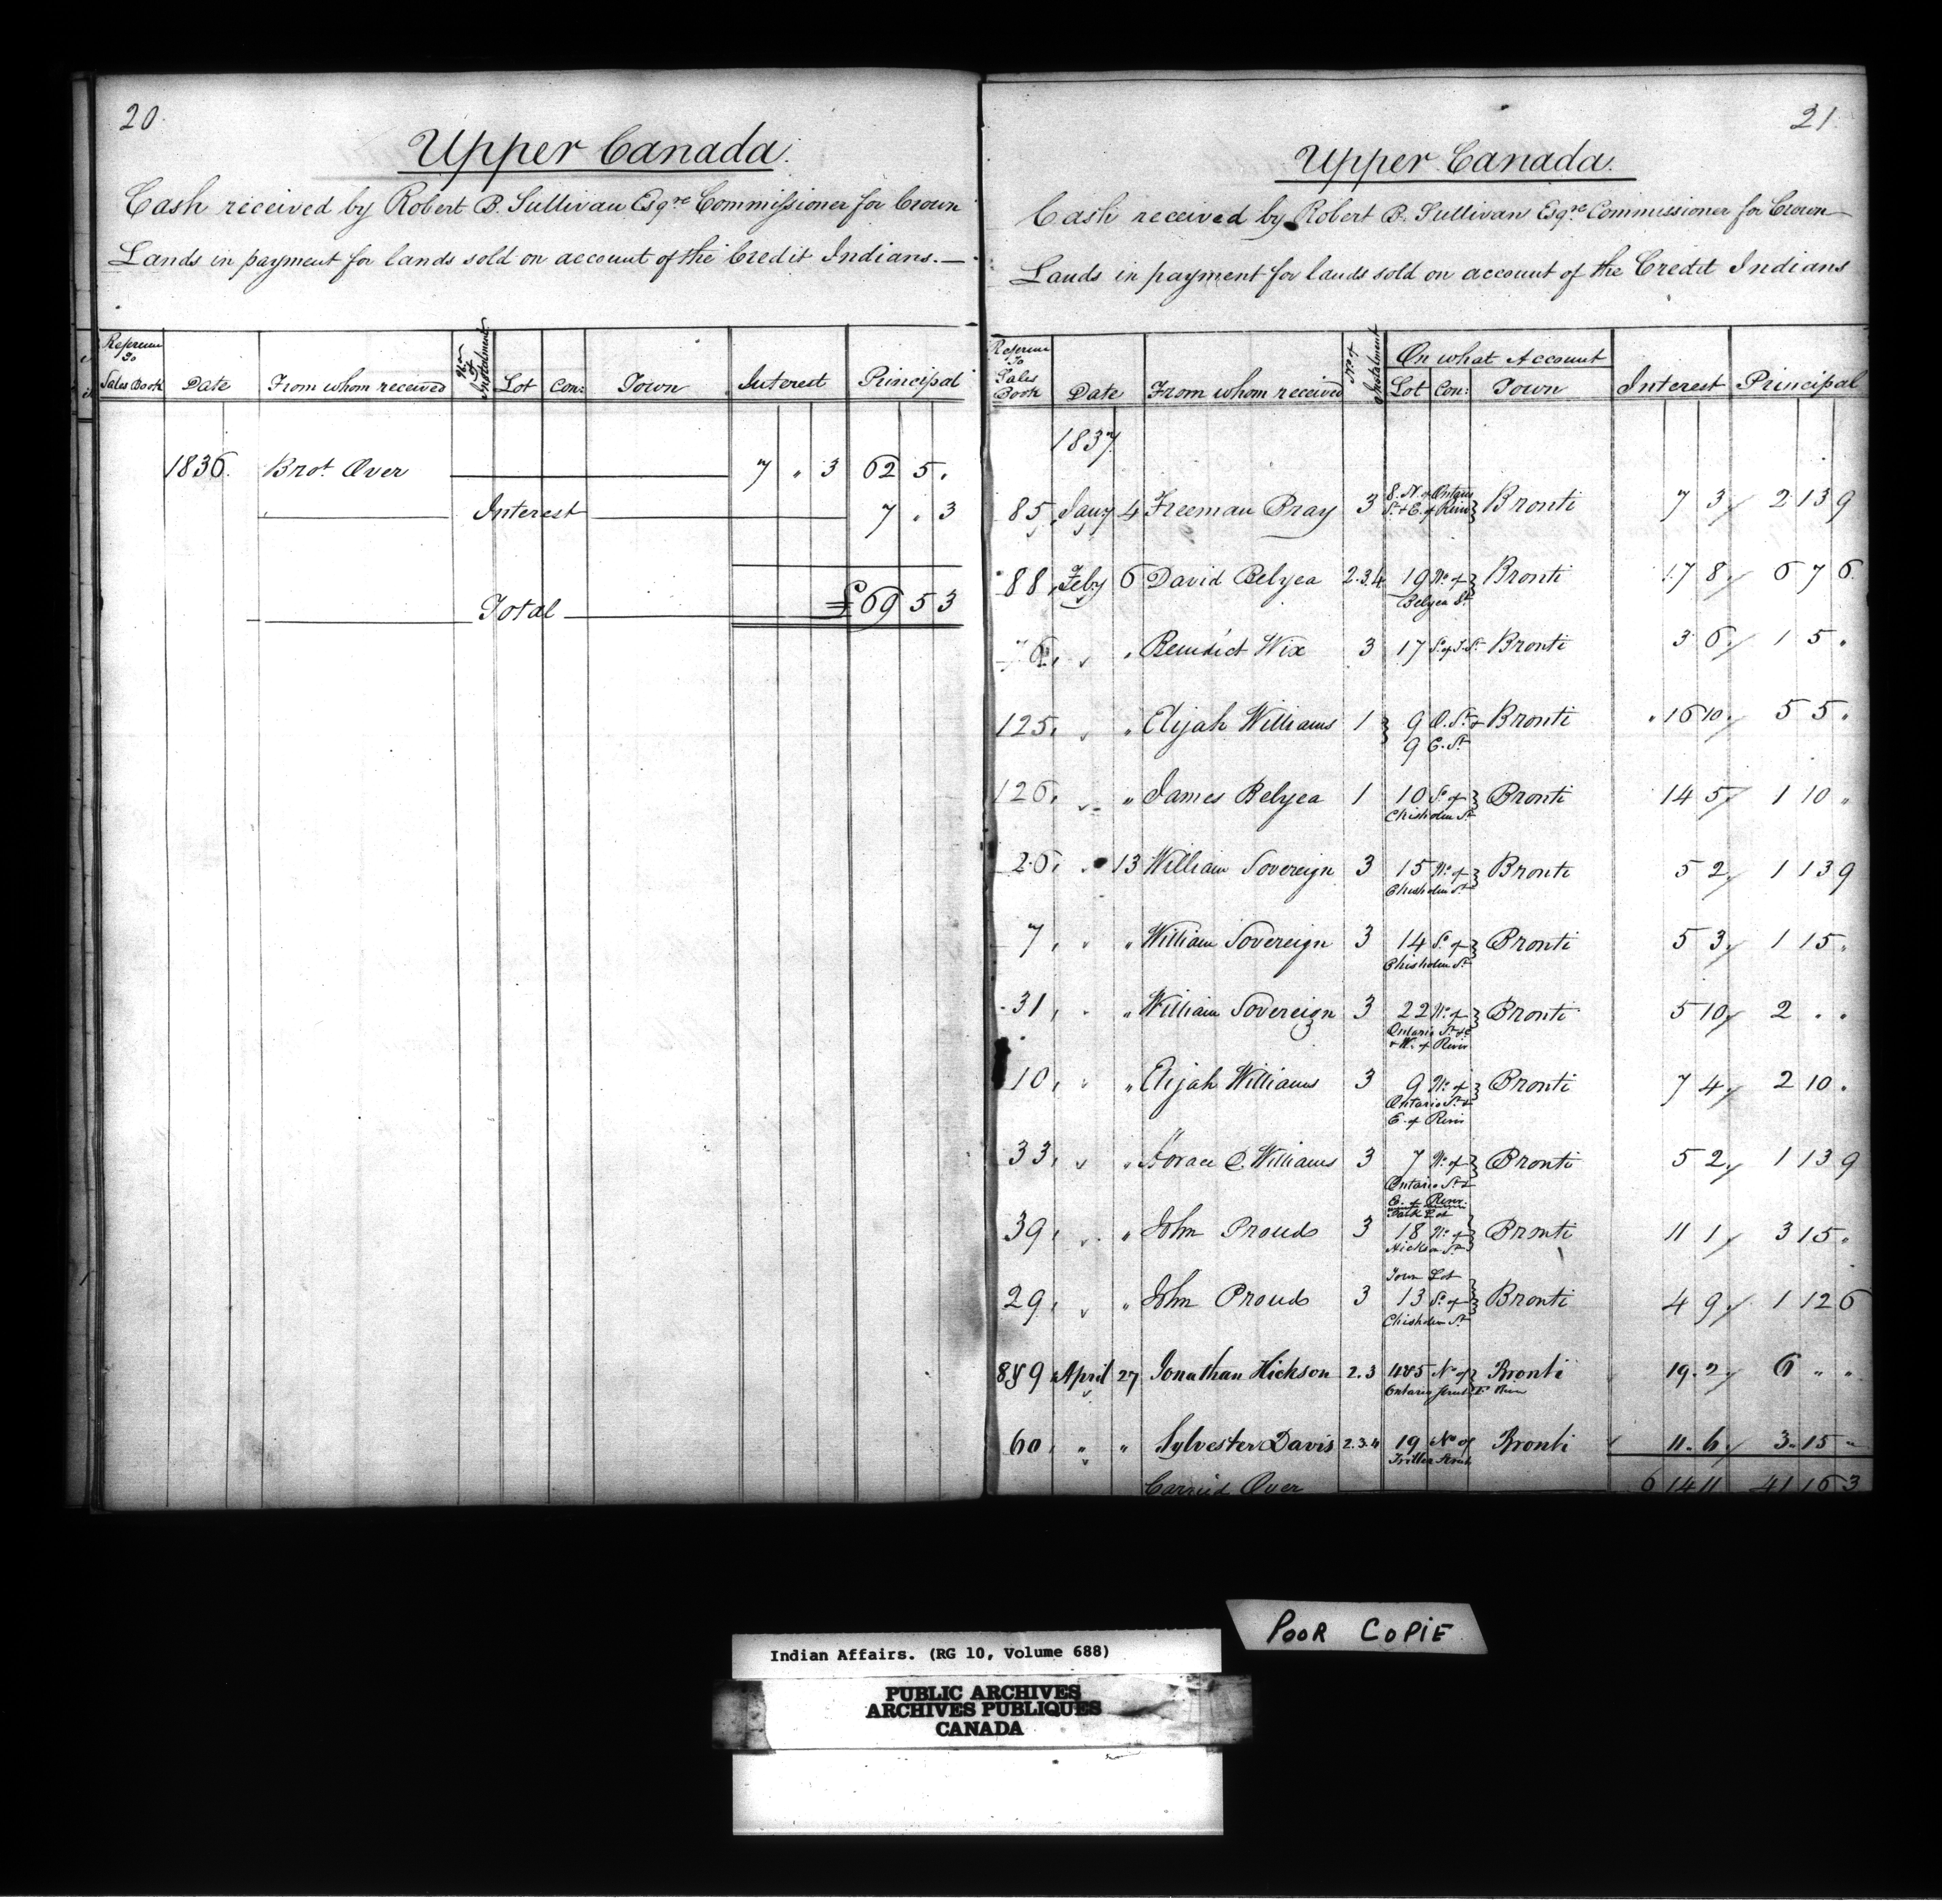 20.
Upper Canada.
Cash received by Robert B. Sullivan Esqre Commissioner for Crown
Lands in payment for lands sold on account of the Credit Indians.—
Sales Book Date From whom received No. of Instalment Lot Con: Town Interest Principal
1836. Brot. Over 7 " 3 62 5 "
Interest 7 " 3
Total £69 5 3
21.
Upper Canada.
Cash received by Robert B. Sullivan Esqre Commissioner for Crown
Lands in payment for lands sold on account of the Credit Indians
On what Account
Sales Book Date From whom received No. of Instalment Lot Con: Town Interest Principal
1837.
85, Jany 4 Freeman Bray 3 8. N. of Ontario Bronti 7 3 2 13 9
St. & E. of River
88, Feby 6 David Belyea 2.3.4 19 No. of Bronti 17 8 6 7 6
Belyea St.
" Benidict Wix 3 17 Bronti 3 6 1 5 "
125, " Elijah Williams 1 9 O. St. & Bronti 16 10 5 5 "
9 C. St.
126, " James Belyea 1 10 S. of Bronti 14 5 1 10 "
Chisholm St.
26, " 13 William Sovereign 3 15 No. of Bronti 5 2 1 13 9
Chisholm St.
7, " " William Sovereign 3 14 S. of Bronti 5 3 1 15 "
Chisholm St.
31, " " William Sovereign 3 22 No. of Bronti 5 10 2 " "
Ontario St.
& W. of River
10, " " Elijah Williams 3 9 No. of Bronti 7 4 2 10 "
Ontario St. &
E. of River
33, " " Horace C. Williams 3 7 No. of Bronti 5 2 1 13 9
Ontario St. &
E. of River
Park Lot
39, " " John Proudo 3 18 No. of Bronti 11 1 3 15 "
Hickson St.
Town Lot
29, " " John Proudo 3 13 S. of Bronti 4 9 1 12 6
Chisholm St.
8&9 April 27 Jonathan Hickson 2.3 4&5 No. of Bronti 19. 2 6 " "
Ontario Street E River
60, " " Sylvester Davis 2.3.4 19 No. of Bronti 11. 6 3. 15 "
Triller Street
Carried Over 6 14 11 41 16 3
POOR COPIE
Indian Affairs. (RG 10, Volume 688)
PUBLIC ARCHIVES
ARCHIVES PUBLIQUES
CANADA